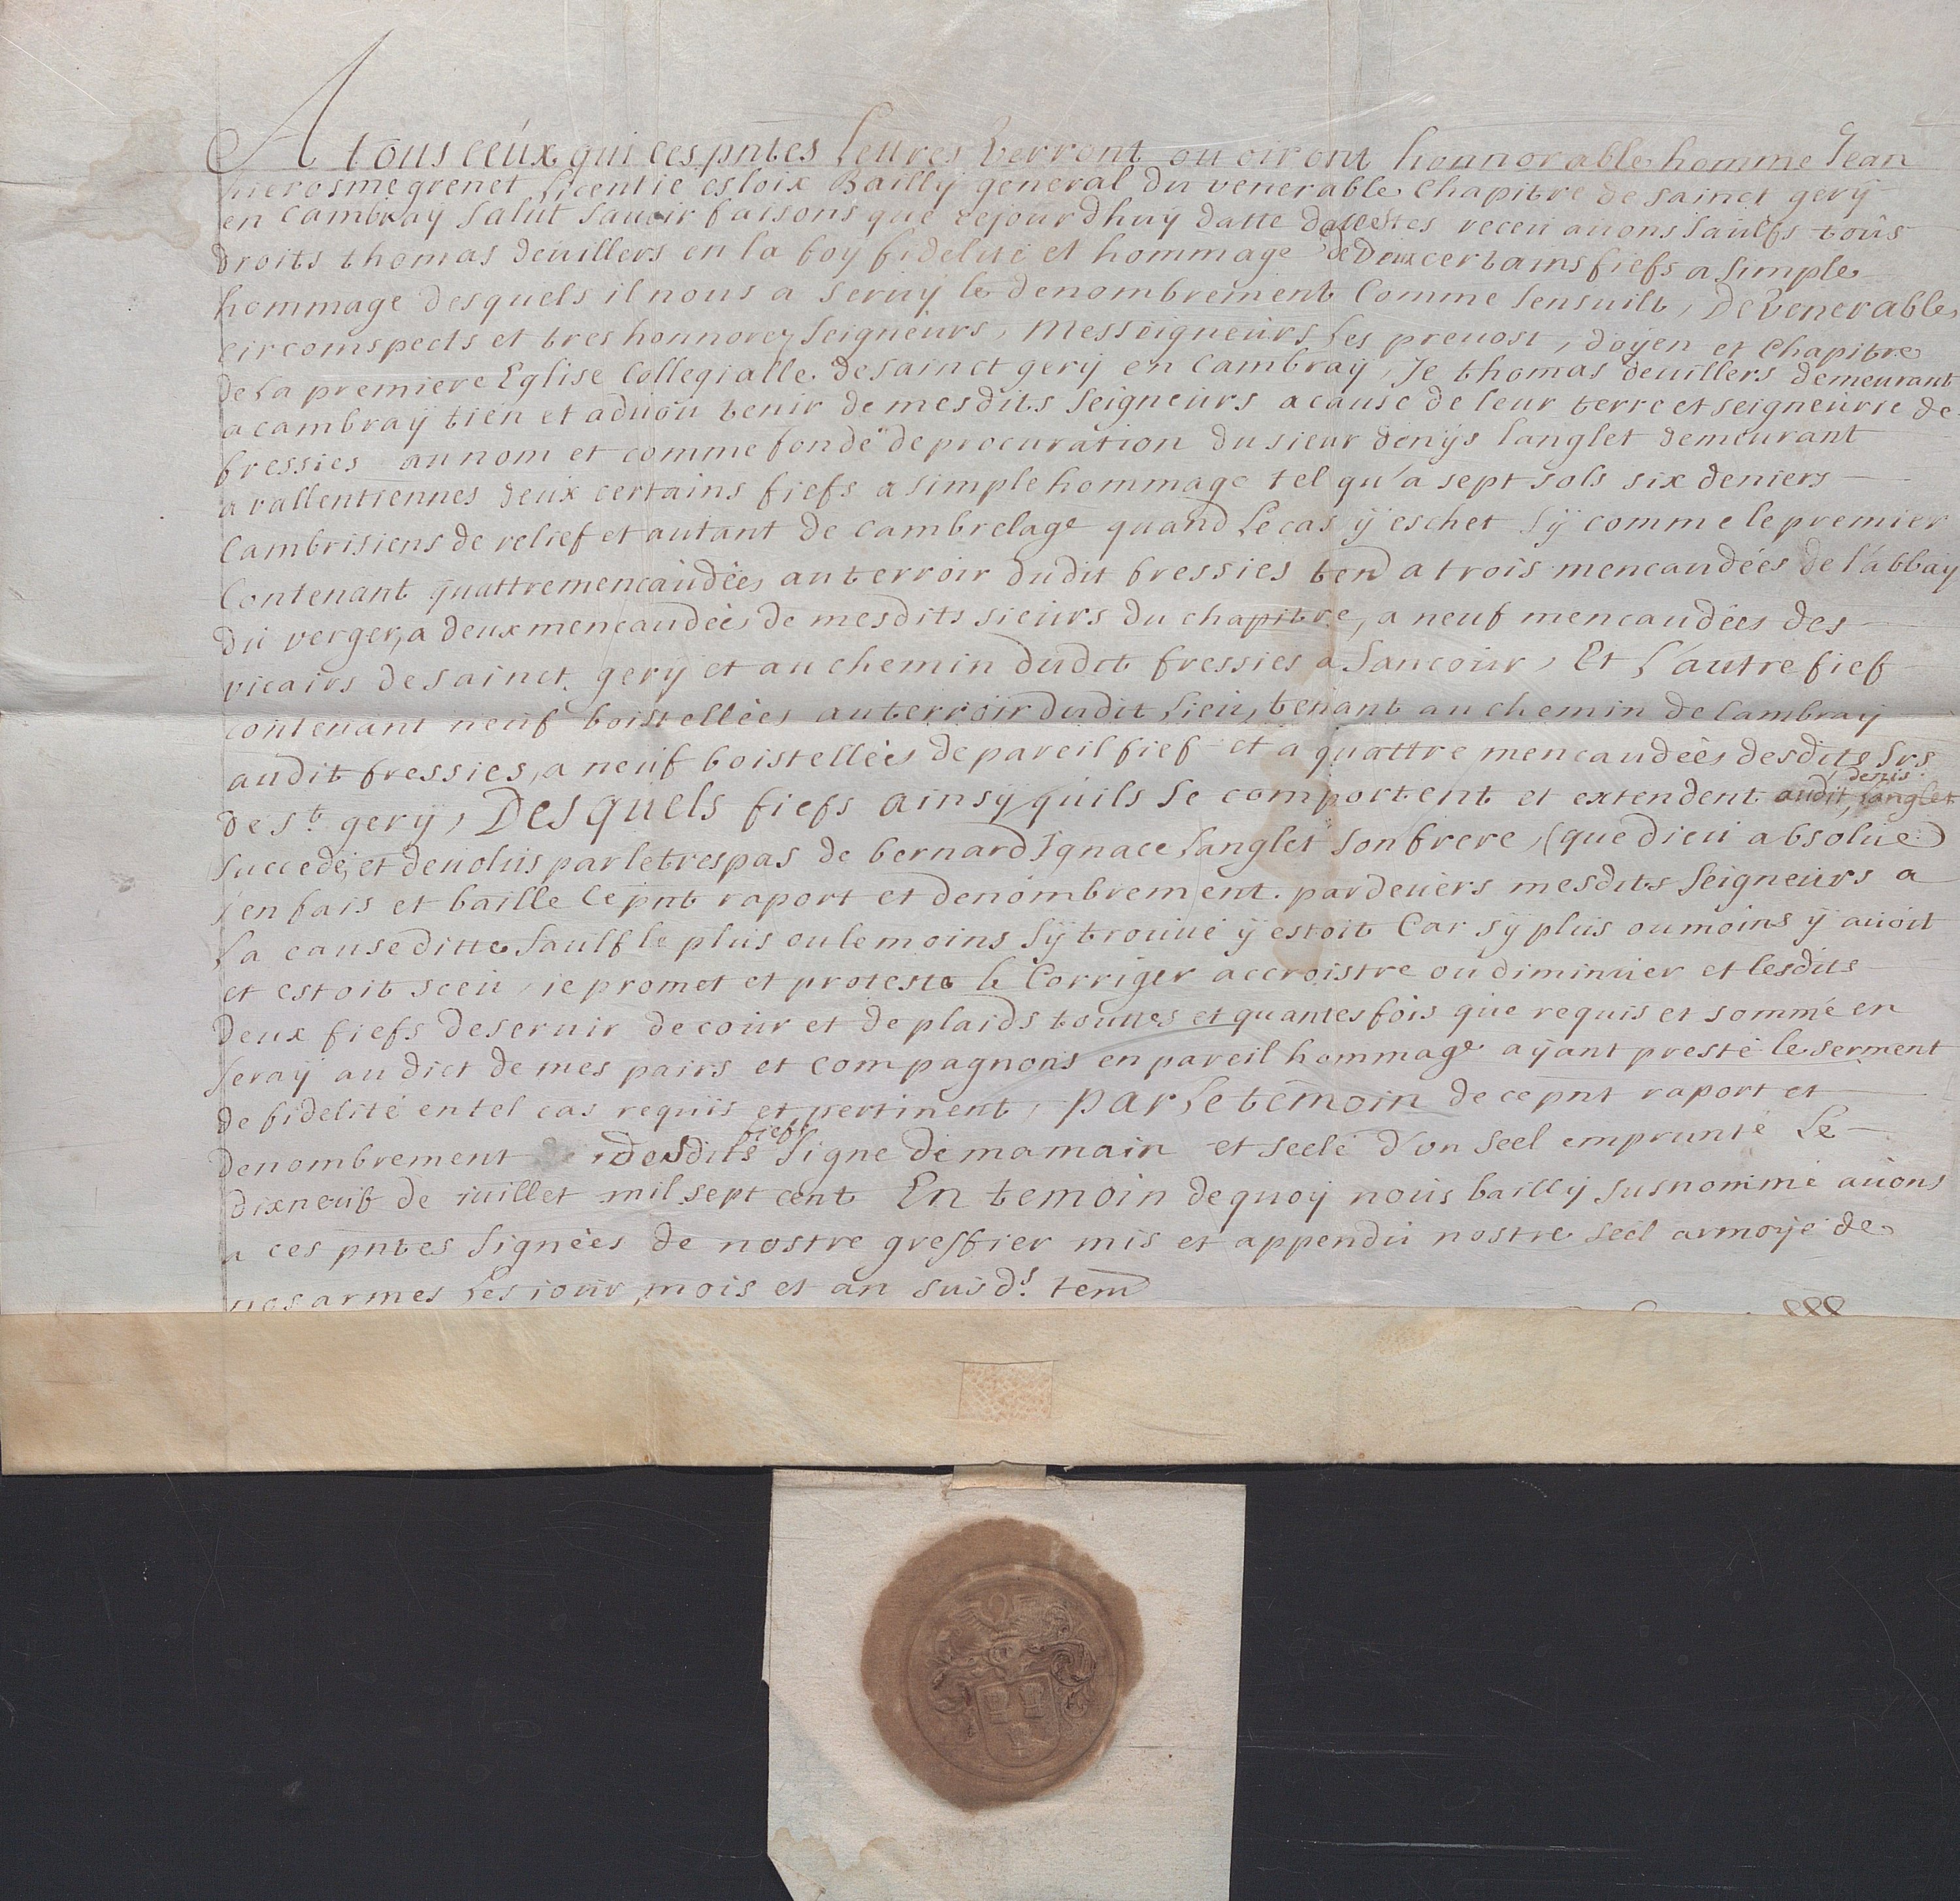 A tous ceux qui ces pntes Lettres verront ou oiront honnorable homme Jean
hierosme grenet Licentie es loix Bailly general du venerable Chapitre de sainct gerÿ
en Cambraÿ Salut Sauoir faisons que cejourdhuÿ datte de cestes receu auons Saulfs tous
droits thomas deuillers en la foy fidelité et hommage de Deux certains fiefs a simple
hommage desquels il nous a seruÿ le denombrement Comme sensuilt, De venerables
circomspects et tres honnorez seigneurs, Messeigneurs Les preuost, doÿen et Chapitre
de La premiere Eglise Collegialle de sainct gerÿ en Cambraÿ, Je thomas deuillers demeurant
a cambraÿ tien et aduou tenir de mesdits seigneurs a cause de leur terre et seigneurie de
fressies au nom et comme fondé de procuration du sieur denÿs langlet demeurant
a vallentiennes deux certains fiefs a simple hommage tel qu'a sept sols six deniers
Cambrisiens de relief et autant de cambrelage quand Le cas ÿ eschet sÿ comme le premier
Contenant quattre mencaudées au terroir dudit fressies tend a trois mencaudées de l'abbay
du verger, a deux mencaudées de mesdits sieurs du chapitre, a neuf mencaudées des
vicairs de sainct gerÿ et au chemin dudit fressies a Sancour, Et L'autre fief
contenant neuf boistellées au terroir dudit Lieu, tenant au chemin de Cambraÿ
audit fressies, a neuf boistellées de pareil fief et a quattre mencaudées desdits srs
de st gerÿ, Desquels fiefs ainsÿ quils se comportent et extendent audit denis langlet
succedé, et deuolus par le trespas de bernard Ignace Langlet son frere, (que dieu absolue)
j'en fais et baille ce pnt raport et denombrement pardeuers mesdits seigneurs a
La cause ditte, saulf le plus ou le moins sÿ trouué ÿ estoit Car sÿ plus ou moins ÿ auoit
et estoit sceu, ie promet et proteste le Corriger accroistre ou diminuer et lesdits
deux fiefs deseruir de cour et de plaids touttes et quantes fois que requis et sommé en
seraÿ au dict de mes pairs et compagnons en pareil hommage aÿant presté le serment
de fidelité en tel cas requis et pertinent, par Le temoin de ce pnt raport et
denombrement desdits fiefs signé de ma main et seelé d'un seel emprunté Le
dixneuf de iuillet mil sept cent En temoin dequoÿ nous baillÿ susnommé auons
a ces pntes signées de nostre greffier mis et appendu nostre séel armoÿé de
nos armes Les iour, mois et an susds. tem